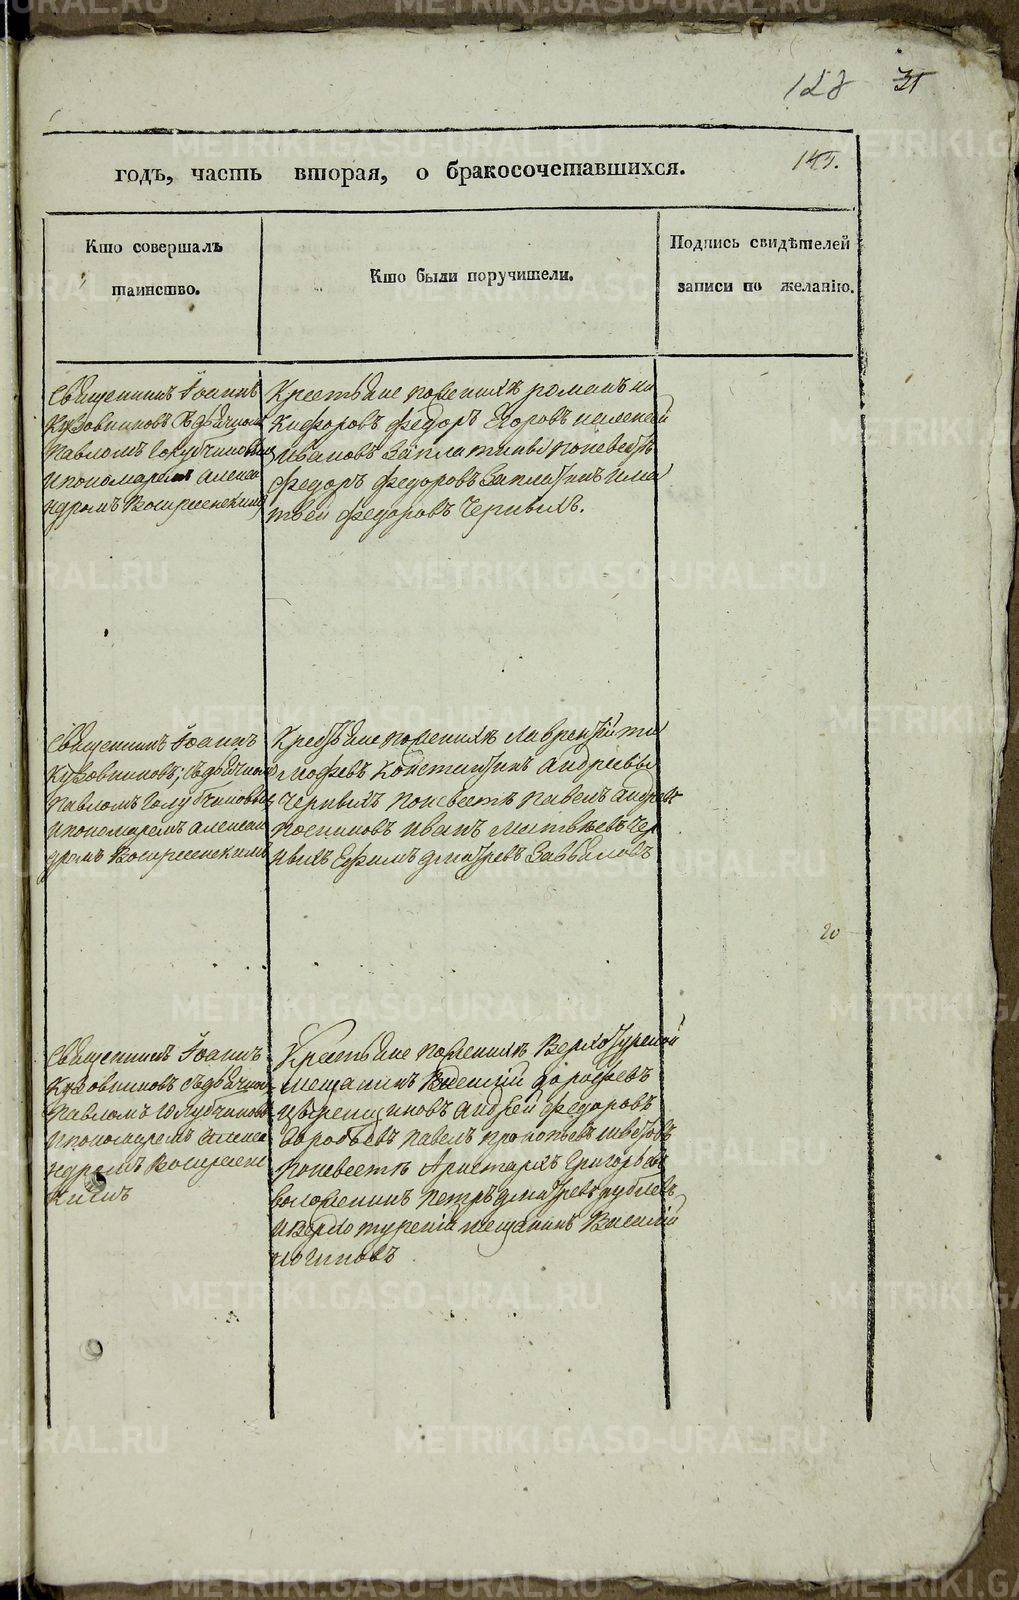 128 31
145.
годъ, часть вторая, о бракосочетавшихся.
Кто совершалъ
таинство.
Кто были поручители.
Подпись свидѣтелей
записи по желанію.
Священникъ Іоаннъ
Кузовниковъ съ дьячкомъ
Павломъ Голубчиковым
и пономаремъ Алекса
ндромъ Воскресенскимъ
Крестьяне по женихѣ Романъ Ни
кифоровъ Федоръ Егоровъ
Ивановъ Заплатины по невестѣ
Федоръ Федоровъ Заплатинъ и Ма
твей Федоровъ Червыхъ.
Священникъ Іоаннъ
Кузовниковъ, съ дьячкомъ
Павломъ Голубчиковым
и пономаремъ Алексан
дромъ Воскресенскимъ
Крестьяне по женихѣ Лаврентій Ти
мофеевъ Константинъ Андреевы
Червыхъ по невестѣ Павелъ Андреев
Посниковъ Иванъ Матвѣевъ Чер
выхъ Ефимъ Дмитревъ Завьяловъ
20
Священникъ Іоаннъ
Кузовниковъ съ дьячком
Павломъ Голубчиковы
и пономаремъ Алекса
ндромъ Воскресенс
кимъ
Крестьяне по женихѣ Верхотурской
мещанинъ Дорофеевъ
Андрей Федоровъ
Воробьевъ Павелъ Прокопьевъ Швецовъ
по невестѣ Аристархъ Григорьевъ
Петръ Дмитревъ Рублевъ
и Верхотурскій мещанинъ Василий
Логиновъ
METRIKI.GASO-URAL.RU